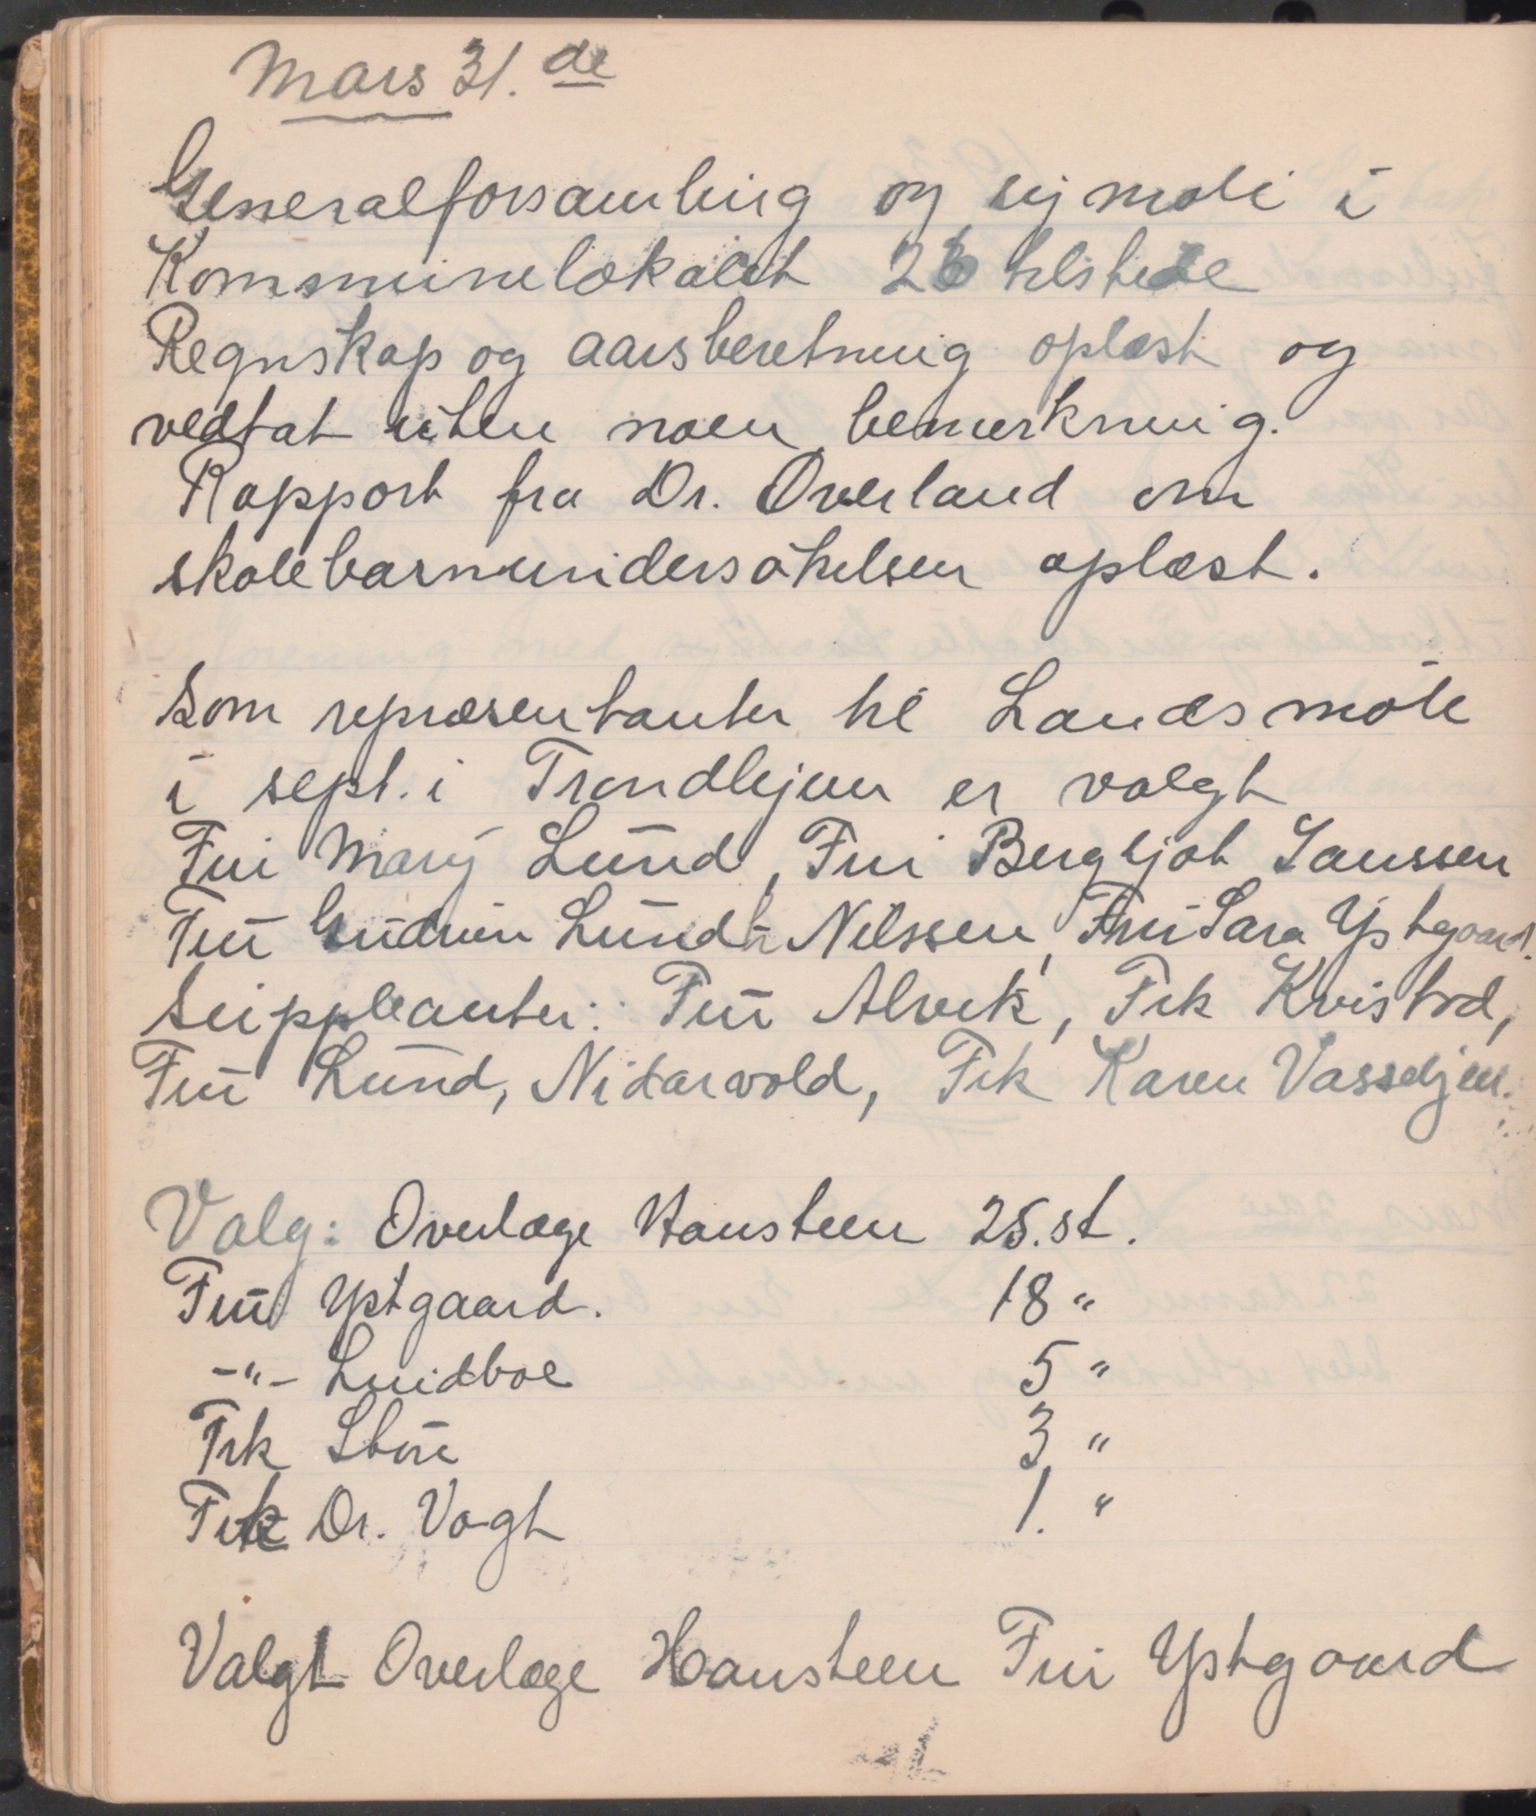 Mars 31.de
Generalforsamling og symøte i
Kommunelokalet 26 tilstede
Regnskap og aarsberetning oplæst og
vedtat uten noen bemerkning.
Rapport fra Dr. Overland om
skolebarnundersøkelsen oplæst.
Som repræsentanter til Landsmøte
i sept. i Trondhjem er valgt
Fru Mary Lund, Fru Bergljot Janssen
Fru Gudrun Lundh Nilssen, Fru Sara Ystgaard.
Suppleanter: Fru Alvek, Frk Kvistad,
Fru Lund, Nidarvold, Frk Karen Vasseljen.
Valg: Overlæge Hansteen 25.st.
Fru Ystgaard. 18 "
-"- Lindboe 5 "
Frk Støre 3 "
Frk Dr. Vogt 1. "
Valgt Overlæge Hansteen Fru Ystgaard